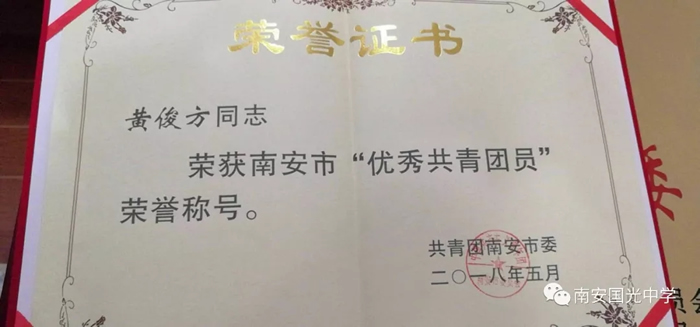 荣誉证书
黄俊方同志
荣获南安市“优秀共青团员”
荣誉称号。
共青团南安市委
二〇一八年五月
南安国光中学